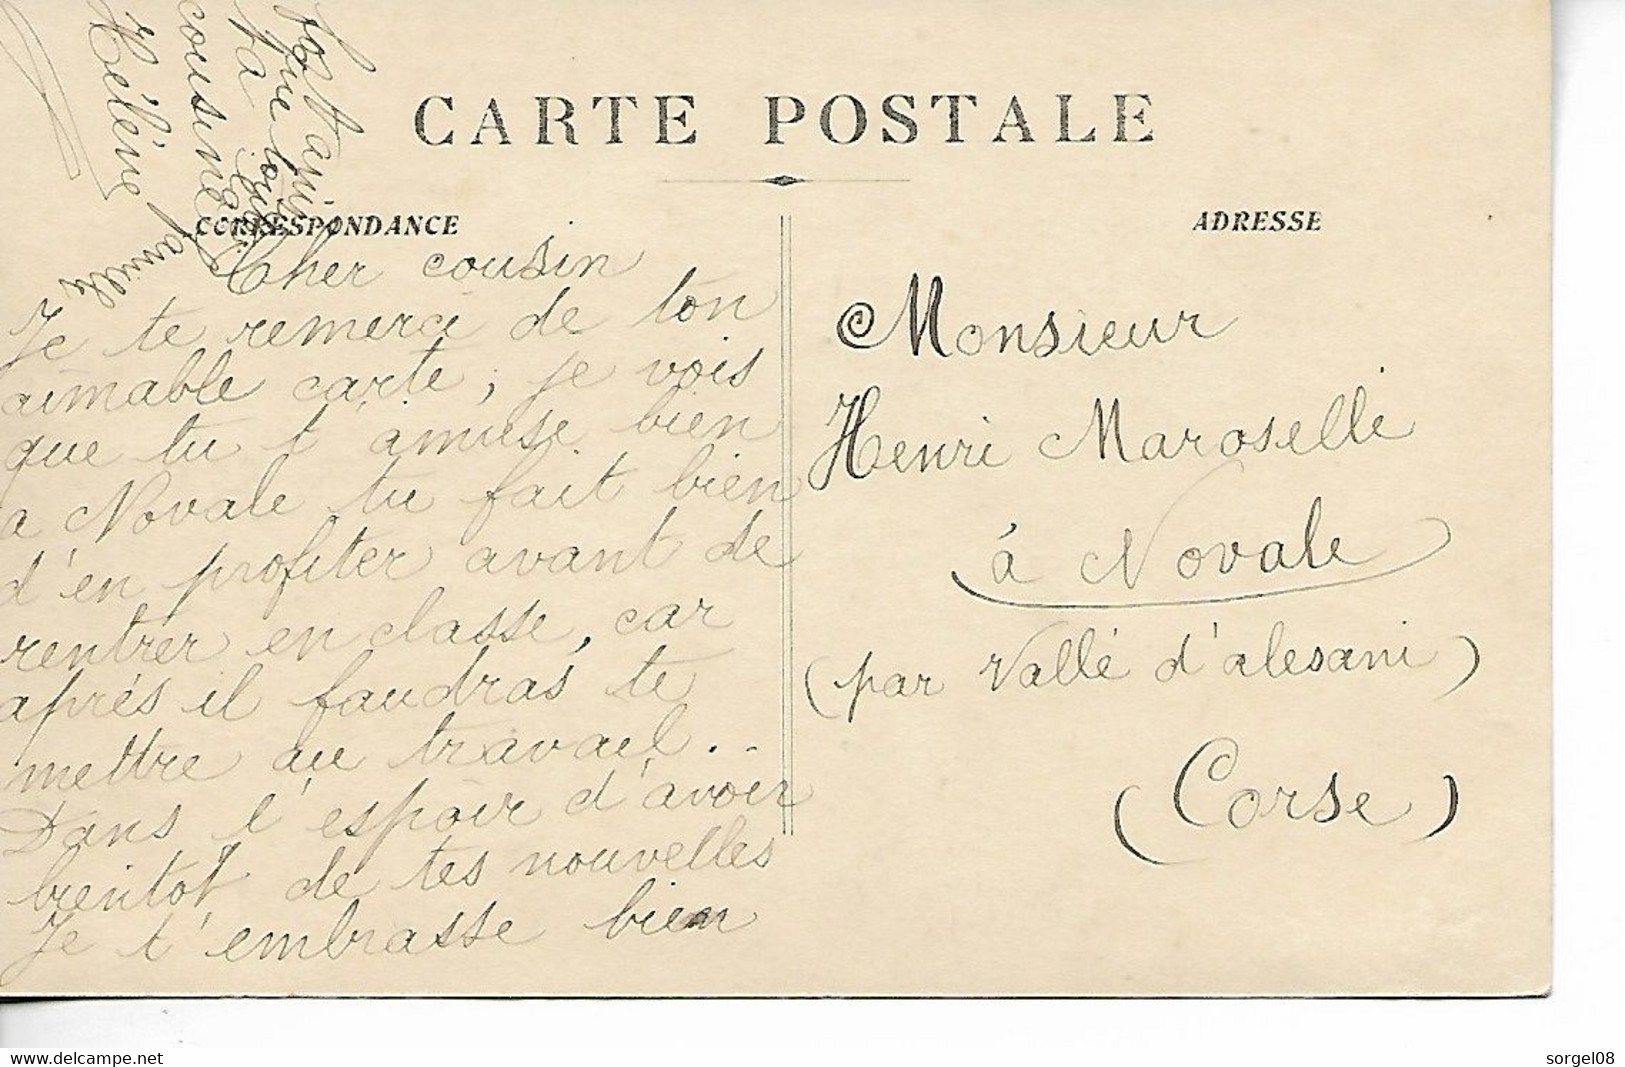 CARTE POSTALE
CORRESPONDANCE
ADRESSE
Cher cousin
Je te remerci de ton
aimable carte, je vois
que tu t'amuse bien
a Novale tu fait bien
d'en profiter avant de
rentrer en classe, car
aprés il faudras te
mettre au travail..
Dans l'espoir d'avoir
bientot de tes nouvelles
Je t'embrasse bien
fort ainsi
que toute
ta
famille
cousine
Hélène
Monsieur
Henri Maroselli
à Novale
(par Vallé d'alesani)
(Corse)
sorgel08